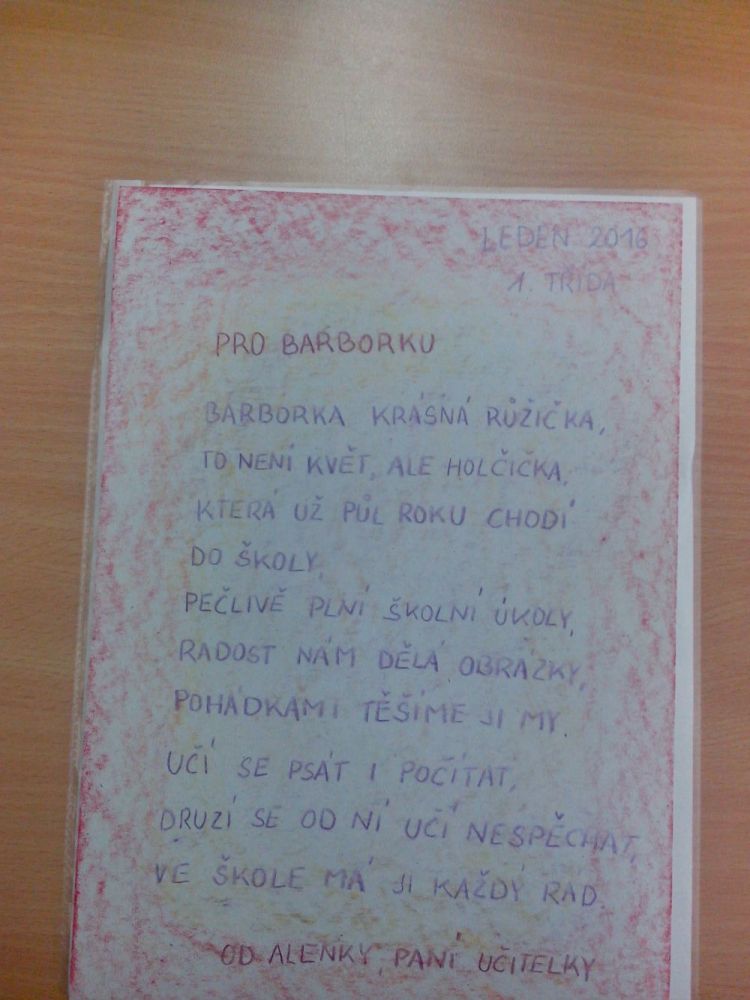 LEDEN 2016
1. TŘÍDA
PRO BARBORKU
BARBORKA KRÁSNÁ RŮŽIČKA,
TO NENÍ KVĚT, ALE HOLČIČKA,
KTERÁ UŽ PŮL ROKU CHODÍ
DO ŠKOLY,
PEČLIVĚ PLNÍ ŠKOLNÍ ÚKOLY,
RADOST NÁM DĚLÁ OBRÁZKY,
POHÁDKAMI TĚŠÍME JI MY.
UČÍ SE PSÁT I POČÍTAT,
DRUZÍ SE OD NÍ UČÍ NESPĚCHAT,
VE ŠKOLE MÁ JI KAŽDÝ RÁD.
OD ALENKY, PANÍ UČITELKY